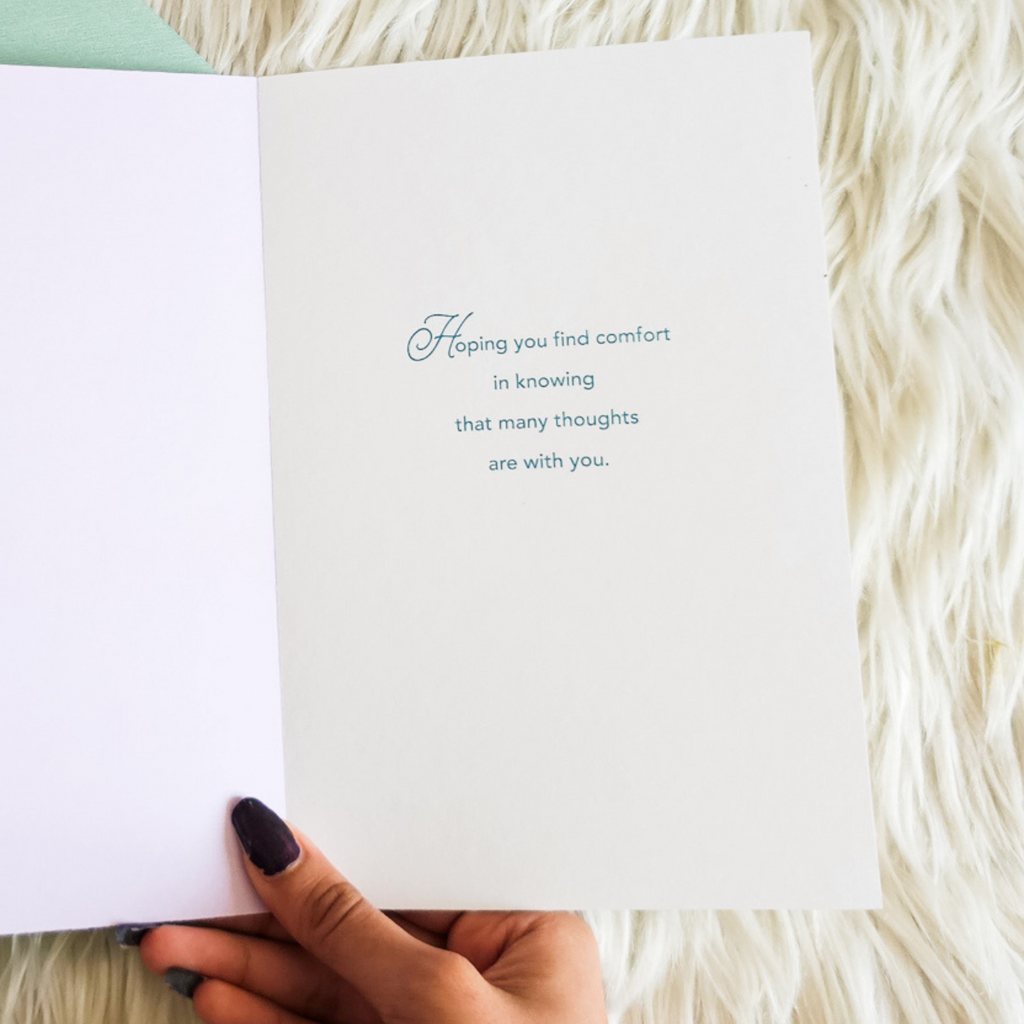 Hoping you find comfort
in knowing
that many thoughts
are with you.